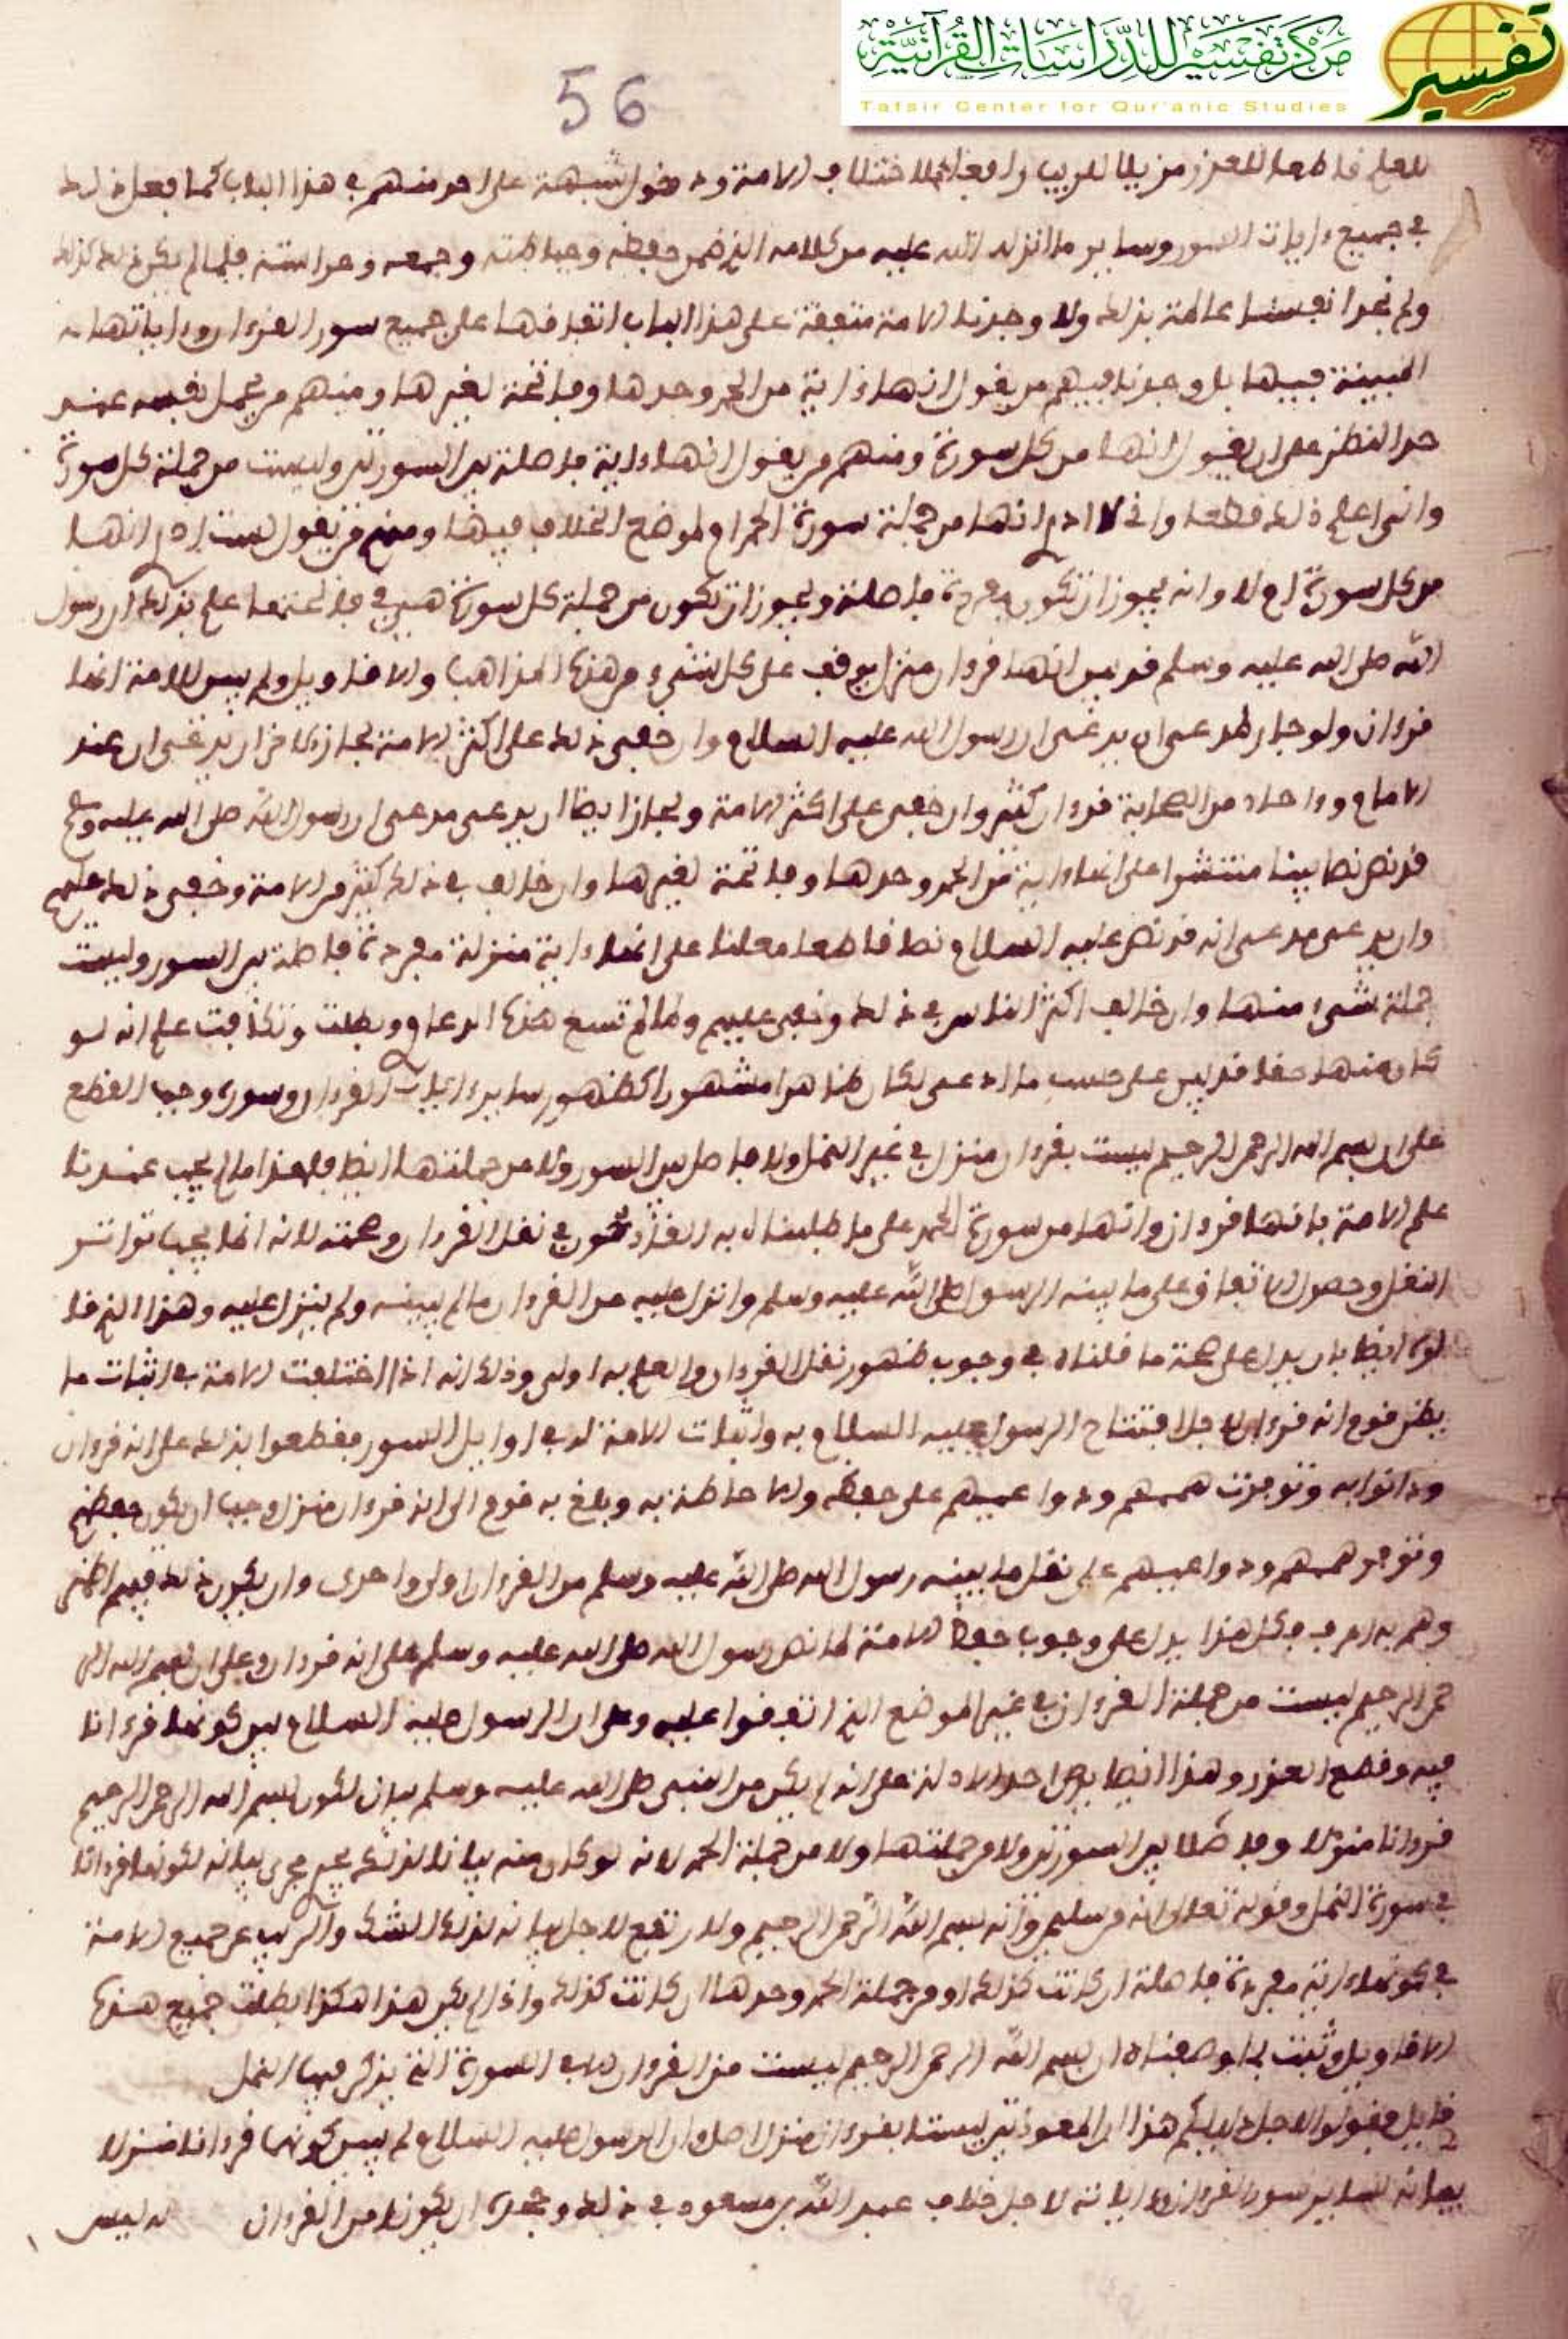 مركز تفسير للدراسات القرآنية
Tafsir Center for Qur'anic Studies
تفسير
56
للعلم قاطعا للعذر مزيلا للريب رافعا للاختلاف الامة ودخول شبهة على احد منهم في هذا الباب كما فعل ذلك
في جميع ءايات السور وساير ما انزل الله عليه من كلامه الذي ضمن حفظه وحياطته وجمعه وحراسته فلما لم يكن ذلك كذلك
ولم نجد انفسنا عالمة بذلك ولا وجدنا الامة متفقة على هذا الباب اتفاقها على جميع سور القرءان وءاياتها
المبينة فيها بل وجدنا فيهم من يقول انها ءاية من الحمد وحدها وفاتحة لغيرها ومنهم من يحمل نفسه عند
حد النظر على ان يقول انها من كل سورة ومنهم من يقول انها ءاية فاصلة بين السورتين وليست من جملة كل سورة
وانى اعلم ذلك قطعا وانى لا ادري انها من جملة سورة الحمد ام لموضع الخلاف فيها ومنهم من يقول لست ادري انها
من كل سورة ام لا وانه يجوز ان تكون مفردة فاصلة ويجوز ان تكون من جملة كل سورة هي في فاتحتها علم بذلك ان رسول
الله صلى الله عليه وسلم قد بين انها قرءان منزل يوقف على كل شيء من هذه المذاهب والاقاويل ولم يبين للامة انها
قرءان ولو جاز لمدع ان يدعي ان رسول الله عليه السلام وان خفي ذلك على اكثر الامة لجاز لاخر ان يدعي ان عند
الامام وءاحاد من الصحابة قرءان كثير وان خفي على اكثر الامة ولجاز ايضا ان يدعي مدعي ان رسول الله صلى الله عليه وسلم
قد نص نصا بينا منتشرا على انها ءاية من الحمد وحدها وفاتحة لغيرها وان خالف في ذلك كثير من الامة وخفي ذلك عليهم
وان يدعي مدعي انه قد نص عليه السلام نصا قاطعا معلنا على انها ءاية منزلة مفردة فاصلة بين السور وليست
جملة شيء منها وان خالف اكثر الناس في ذلك وخفي عليهم ولما لم تسع هذه الدعاوي وبطلت وتكافت علم انه لو
كان منها حقا قد بين على حسب ما ادعى لكان ظاهرا مشهورا كظهور ساير ءايات القرءان وسوره وجب القطع
على ان بسم الله الرحمن الرحيم ليست بقرءان منزل في غير النمل ولا فاصل بين السور ولا من جملتها ايضا فهذا ما لم يجب عندنا
علم الامة بانها قرءان وانها من سورة الحمد على ما طلبنا به القادحون في نقل القرءان وصحته لانه انما يجب تواتر
النقل وحصول الاتفاق على ما بينه الرسول صلى الله عليه وسلم وانزل عليه من القرءان ما لم يبينه ولم ينزل عليه وهذا الذي قلناه
ايضا بان يدل على صحة ما قلناه في وجوب ظهور نقل القرءان والعلم به اولى وذلك انه اذا اختلفت الامة في اثبات ما
يظن قوم انه قرءان لاجل افتتاح الرسول عليه السلام به واثبات الامة له في اوايل السور فقطعوا بذلك على انه قرءان
ودانوا به وتوفرت هممهم ودواعيهم على حفظه والاحاطة به وبلغ به قوم الى انه قرءان منزل وجب ان يكون حفظهم
وتوفر هممهم ودواعيهم على نقل ما بينه رسول الله صلى الله عليه وسلم من القرءان اولى واحرى وان يكون ذلك فيهم اظهر
وهم به اعرف وكل هذا يدل على وجوب حفظ الامة لما نص رسول الله صلى الله عليه وسلم على انه قرءان وعلى ان بسم الله الر
حمن الرحيم ليست من جملة القرءان في غير الموضع الذي اتفقوا عليه وعلى ان الرسول عليه السلام بين كونها قرءانا
فيه وقطع العذر وهذا ايضا من احد الادلة على انه لم يكن من النبي صلى الله عليه وسلم بيان لكون بسم الله الرحمن الرحيم
قرءانا منزلا وفاصلا بين السورتين ولا من جملتها ولا من جملة الحمد لانه لو كان منه بيانا لذلك لجرى مجرى بيانه لكونها قرءانا
في سورة النمل وقوله تعلى انه من سليمن وانه بسم الله الرحمن الرحيم ولارتفع لاجل بيانه لذلك الشك والريب عن جميع الامة
في كونها ءاية مفردة فاصلة ان كانت كذلك او من جملة الحمد وحدها ان كانت كذلك واذا لم يكن هذا هكذا بطلت جميع هذه
الاقاويل وثبت بما وصفناه ان بسم الله الرحمن الرحيم ليست من القرءان الا في السورة التي يذكر فيها النمل
فان قيل فقولوا لاجل دليلكم هذا ان المعوذتين ليستا بقرءان منزل اصلا وان الرسول عليه السلام لم يبين كونهما قرءانا منزلا
بيانه لساير سور القرءان وءاياته لاجل خلاف عبد الله بن مسعود في ذلك وجحده ان يكونا من القرءان